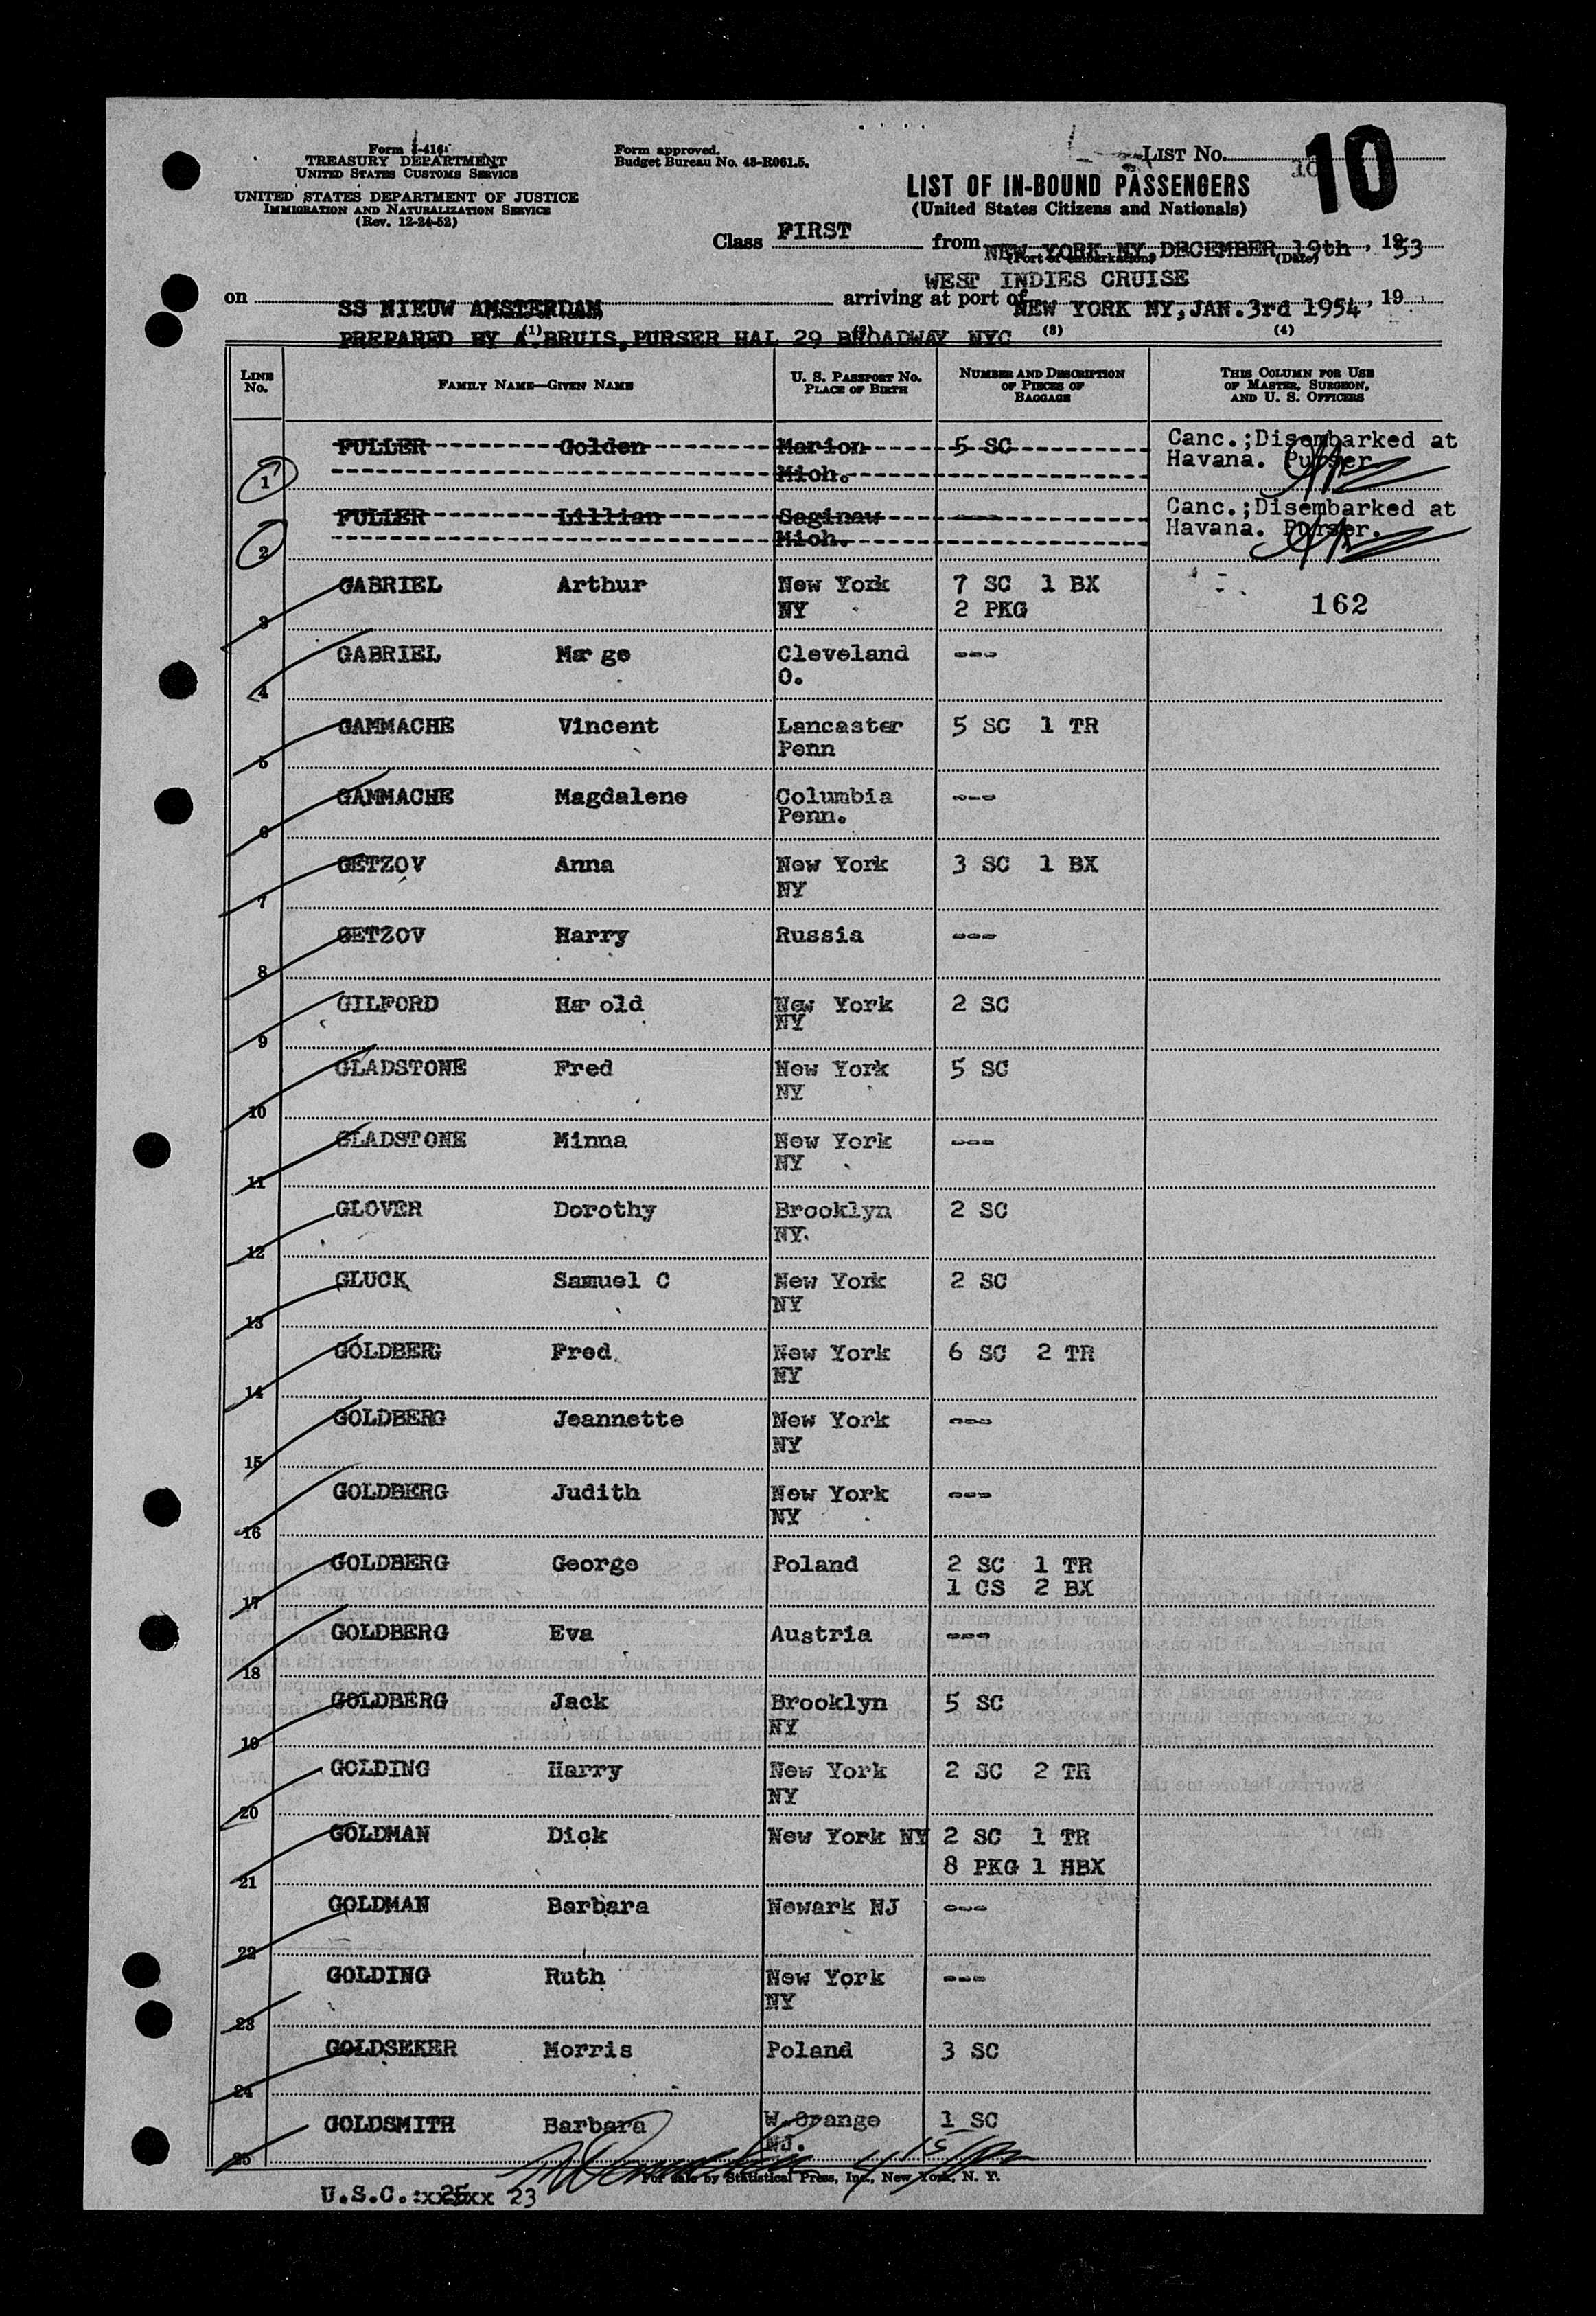 Form I-416
TREASURY DEPARTMENT
UNITED STATES CUSTOMS SERVICE
UNITED STATES DEPARTMENT OF JUSTICE
IMMIGRATION AND NATURALIZATION SERVICE
(Rev. 12-24-52)
Form approved.
Budget Bureau No. 43-R061.5.
LIST No. 10
10
LIST OF IN-BOUND PASSENGERS
(United States Citizens and Nationals)
Class FIRST from NEW YORK NY, DECEMBER 19th, 1953
(Port of embarkation) (Date)
WEST INDIES CRUISE
on SS NIEUW AMSTERDAM arriving at port of NEW YORK NY, JAN. 3rd 1954, 19
PREPARED BY A. BRUIS, PURSER HAL 29 BROADWAY NYC
(1) (2) (3) (4)
LINE No. FAMILY NAME—GIVEN NAME U. S. PASSPORT No. PLACE OF BIRTH NUMBER AND DESCRIPTION OF PIECES OF BAGGAGE THIS COLUMN FOR USE OF MASTER, SURGEON, AND U. S. OFFICERS
FULLER Golden Marion 5 SC Canc.;Disembarked at
1 Mich. Havana. Purser.
FULLER Lillian Saginaw --- Canc.;Disembarked at
2 Mich. Havana. Purser.
GABRIEL Arthur New York 7 SC 1 BX
3 NY 2 PKG 162
GABRIEL Marge Cleveland ---
4 O.
GAMMACHE Vincent Lancaster 5 SC 1 TR
5 Penn
GAMMACHE Magdalene Columbia ---
6 Penn.
GETZOV Anna New York 3 SC 1 BX
7 NY
GETZOV Harry Russia ---
8
GILFORD Harold New York 2 SC
9 NY
GLADSTONE Fred New York 5 SC
10 NY
GLADSTONE Minna New York ---
11 NY
GLOVER Dorothy Brooklyn 2 SC
12 NY.
GLUCK Samuel C New York 2 SC
13 NY
GOLDBERG Fred New York 6 SC 2 TR
14 NY
GOLDBERG Jeannette New York ---
15 NY
GOLDBERG Judith New York ---
16 NY
GOLDBERG George Poland 2 SC 1 TR
17 1 CS 2 BX
GOLDBERG Eva Austria ---
18
GOLDBERG Jack Brooklyn 5 SC
19 NY
GOLDING Harry New York 2 SC 2 TR
20 NY
GOLDMAN Dick New York NY 2 SC 1 TR
21 8 PKG 1 HBX
GOLDMAN Barbara Newark NJ ---
22
GOLDING Ruth New York ---
23 NY
GOLDSEKER Morris Poland 3 SC
24
GOLDSMITH Barbara W.Orange 1 SC
25 NJ.
For sale by Statistical Press, Inc., New York, N. Y.
U.S.C.:xx25xx 23